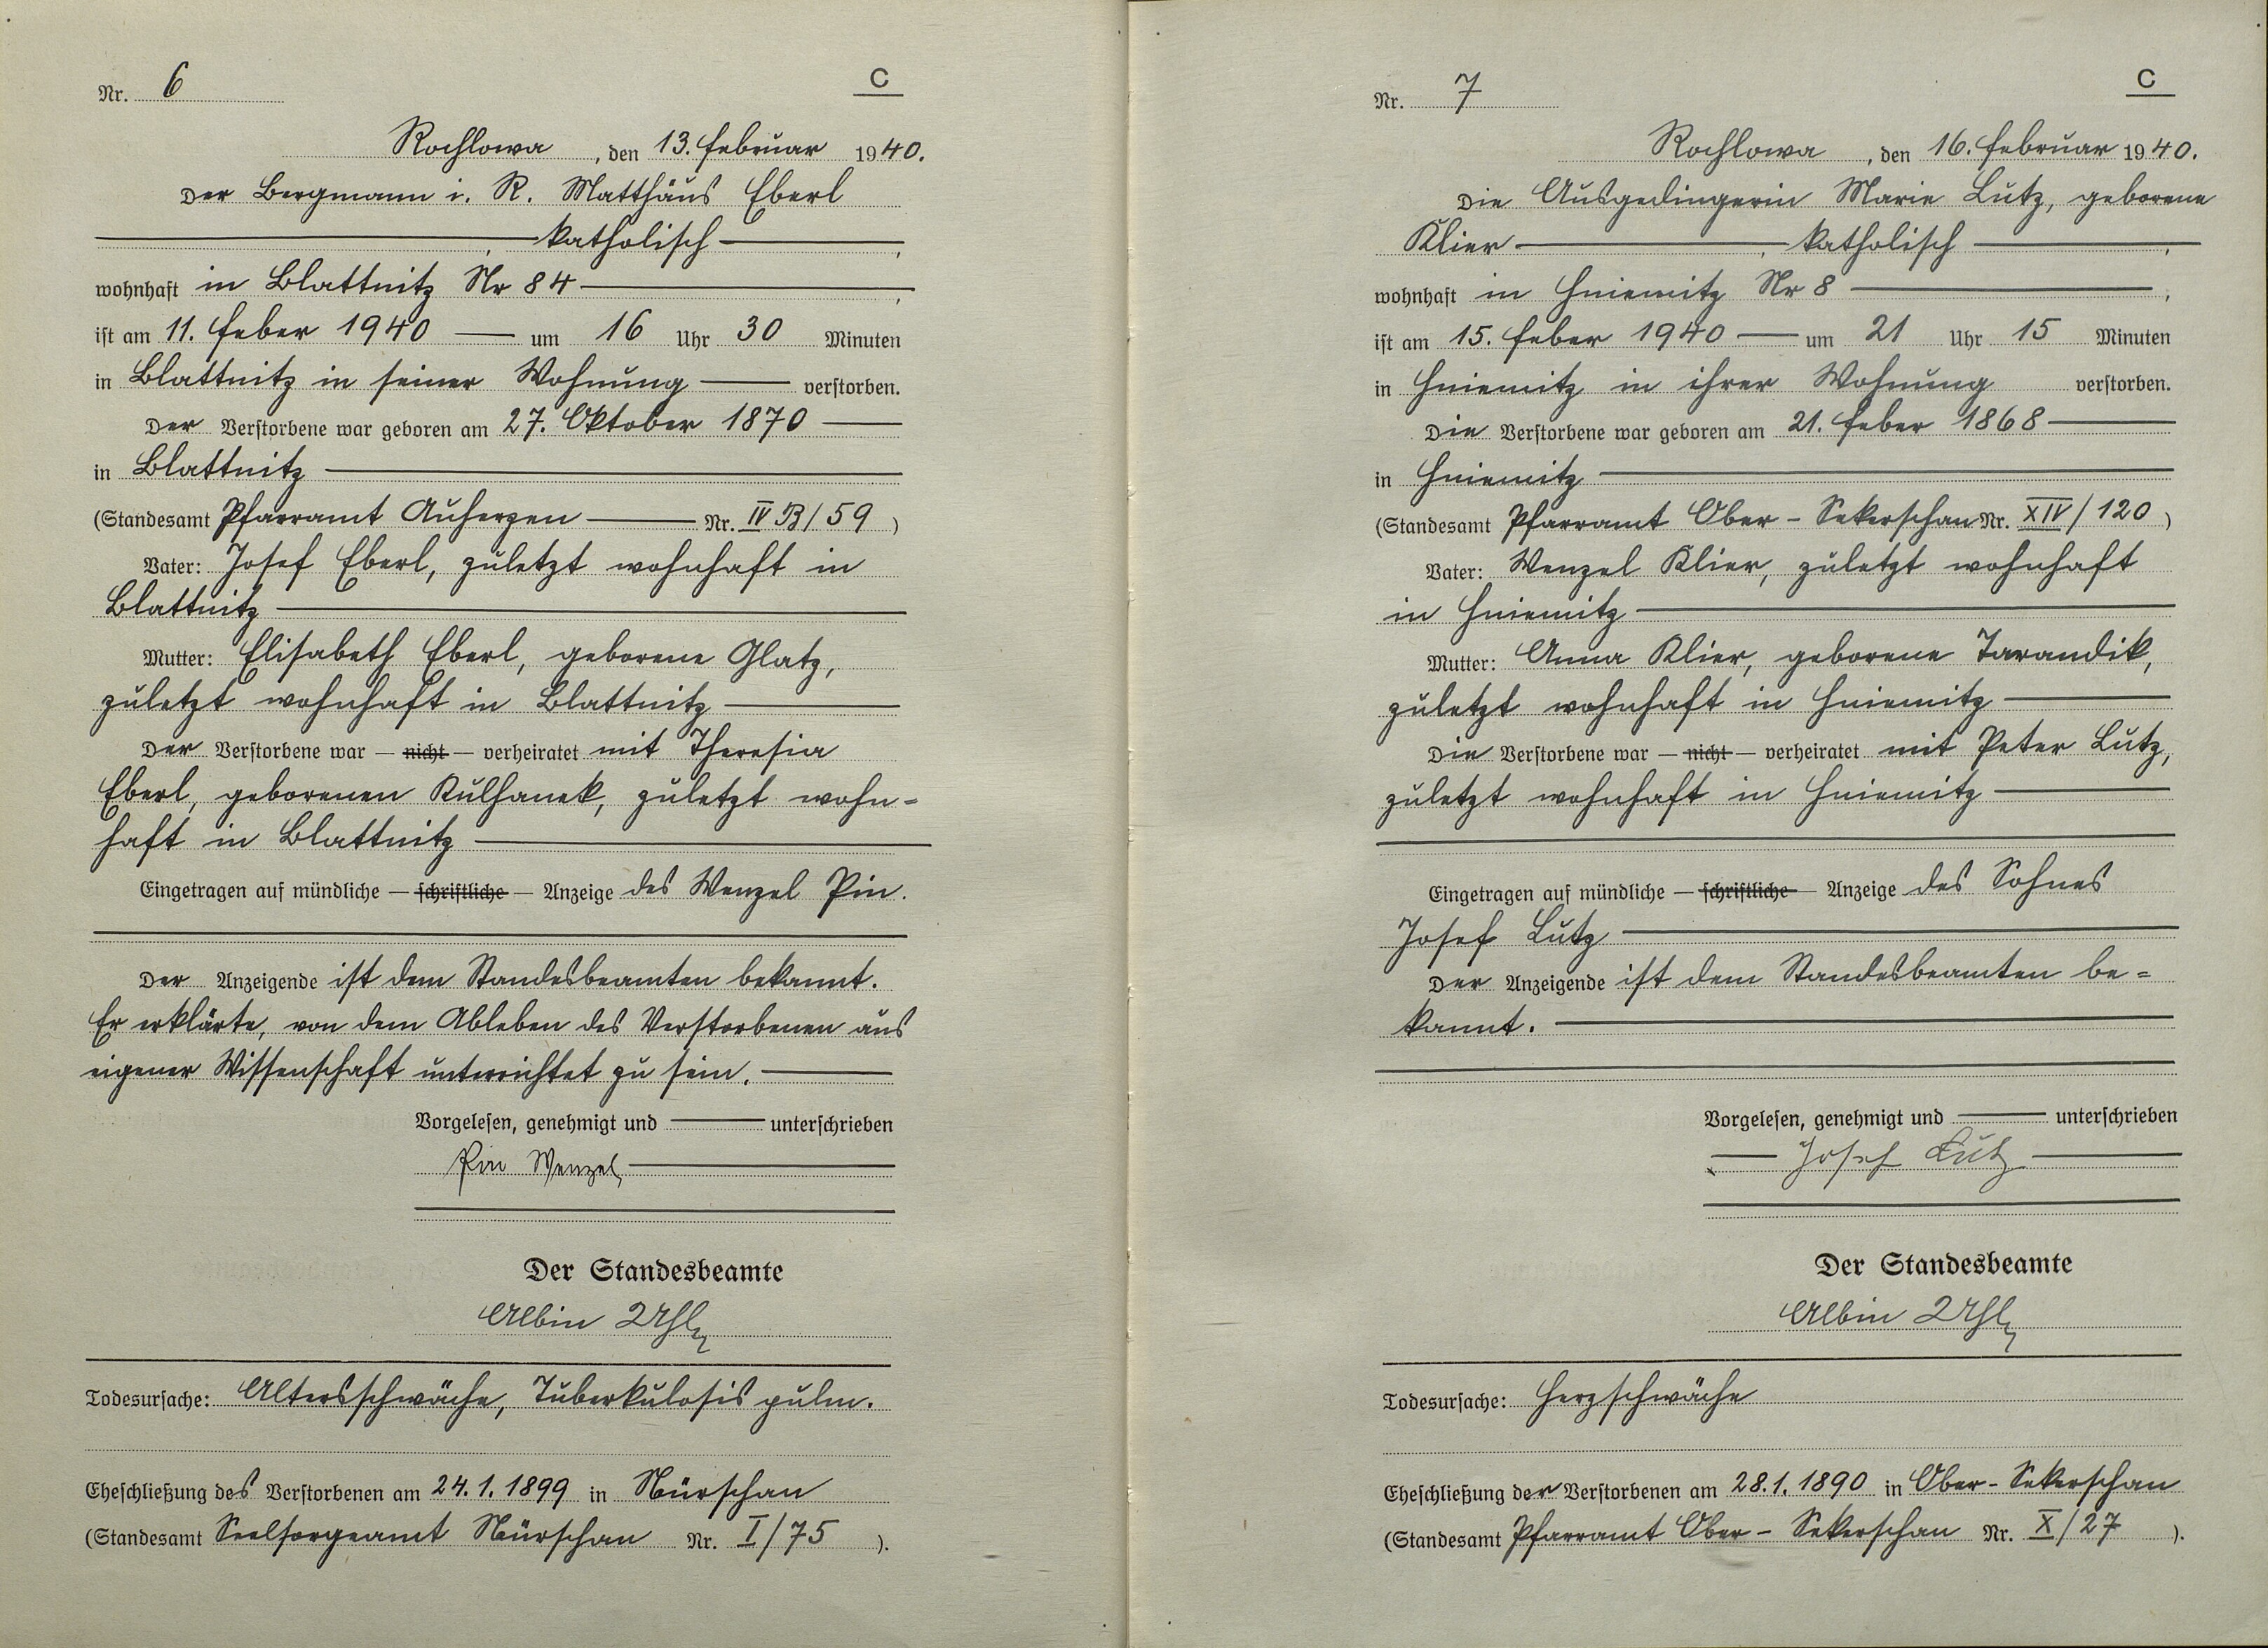 Nr. 6
C
Rochlowa, den 13. Februar 1940.
Der Bergmann i. R. Matthäus Eberl
katholisch,
wohnhaft in Blattnitz Nr 84,
ist am 11. Feber 1940 um 16 Uhr 30 Minuten
in Blattnitz in seiner Wohnung verstorben.
Der Verstorbene war geboren am 27. Oktober 1870
in Blattnitz
(Standesamt Pfarramt Auherzen Nr. IV B/59)
Vater: Josef Eberl, zuletzt wohnhaft in
Blattnitz
Mutter: Elisabeth Eberl, geborene Glatz,
zuletzt wohnhaft in Blattnitz
Der Verstorbene war — nicht — verheiratet mit Theresia
Eberl, geborenen Kulhanek, zuletzt wohn-
haft in Blattnitz
Eingetragen auf mündliche — schriftliche — Anzeige des Wenzel Pin.
Der Anzeigende ist dem Standesbeamten bekannt.
Er erklärte, von dem Ableben des Verstorbenen aus
eigener Wissenschaft unterrichtet zu sein.
Vorgelesen, genehmigt und unterschrieben
Pin Wenzel
Der Standesbeamte
Albin
Todesursache: Altersschwäche, Tuberkulosis pulm.
Eheschließung des Verstorbenen am 24.1.1899 in Nürschan
(Standesamt Seelsorgeamt Nürschan Nr. I/75).
Nr. 7
C
Rochlowa, den 16. Februar 1940.
Die Ausgedingerin Marie Lutz, geborene
Klier, katholisch,
wohnhaft in Hniemitz Nr 8,
ist am 15. Feber 1940 um 21 Uhr 15 Minuten
in Hniemitz in ihrer Wohnung verstorben.
Die Verstorbene war geboren am 21. Feber 1868
in Hniemitz
(Standesamt Pfarramt Ober-Sekerschan Nr. XIV/120)
Vater: Wenzel Klier, zuletzt wohnhaft
in Hniemitz
Mutter: Anna Klier, geborene Tarandik,
zuletzt wohnhaft in Hniemitz
Die Verstorbene war — nicht — verheiratet mit Peter Lutz,
zuletzt wohnhaft in Hniemitz
Eingetragen auf mündliche — schriftliche — Anzeige des Sohnes
Josef Lutz
Der Anzeigende ist dem Standesbeamten be-
kannt.
Vorgelesen, genehmigt und unterschrieben
Josef Lutz
Der Standesbeamte
Albin
Todesursache: Herzschwäche
Eheschließung der Verstorbenen am 28.1.1890 in Ober-Sekerschan
(Standesamt Pfarramt Ober-Sekerschan Nr. X/27).